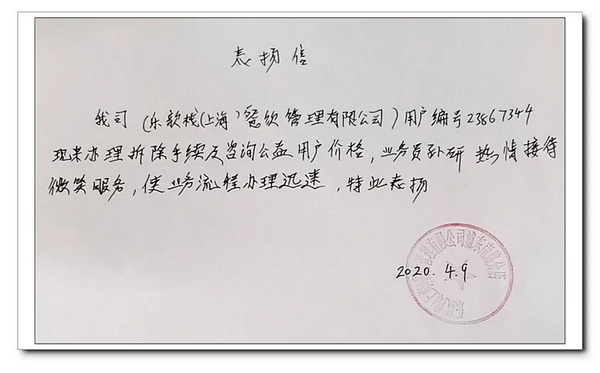 表扬信
我司(乐歌栈(上海)餐饮管理有限公司)用户编号23867344
现来办理拆除手续及咨询公益用户价格,业务员孙研热情接待
微笑服务,使业务流程办理迅速,特此表扬
2020.4.9
管理有限公司浦东